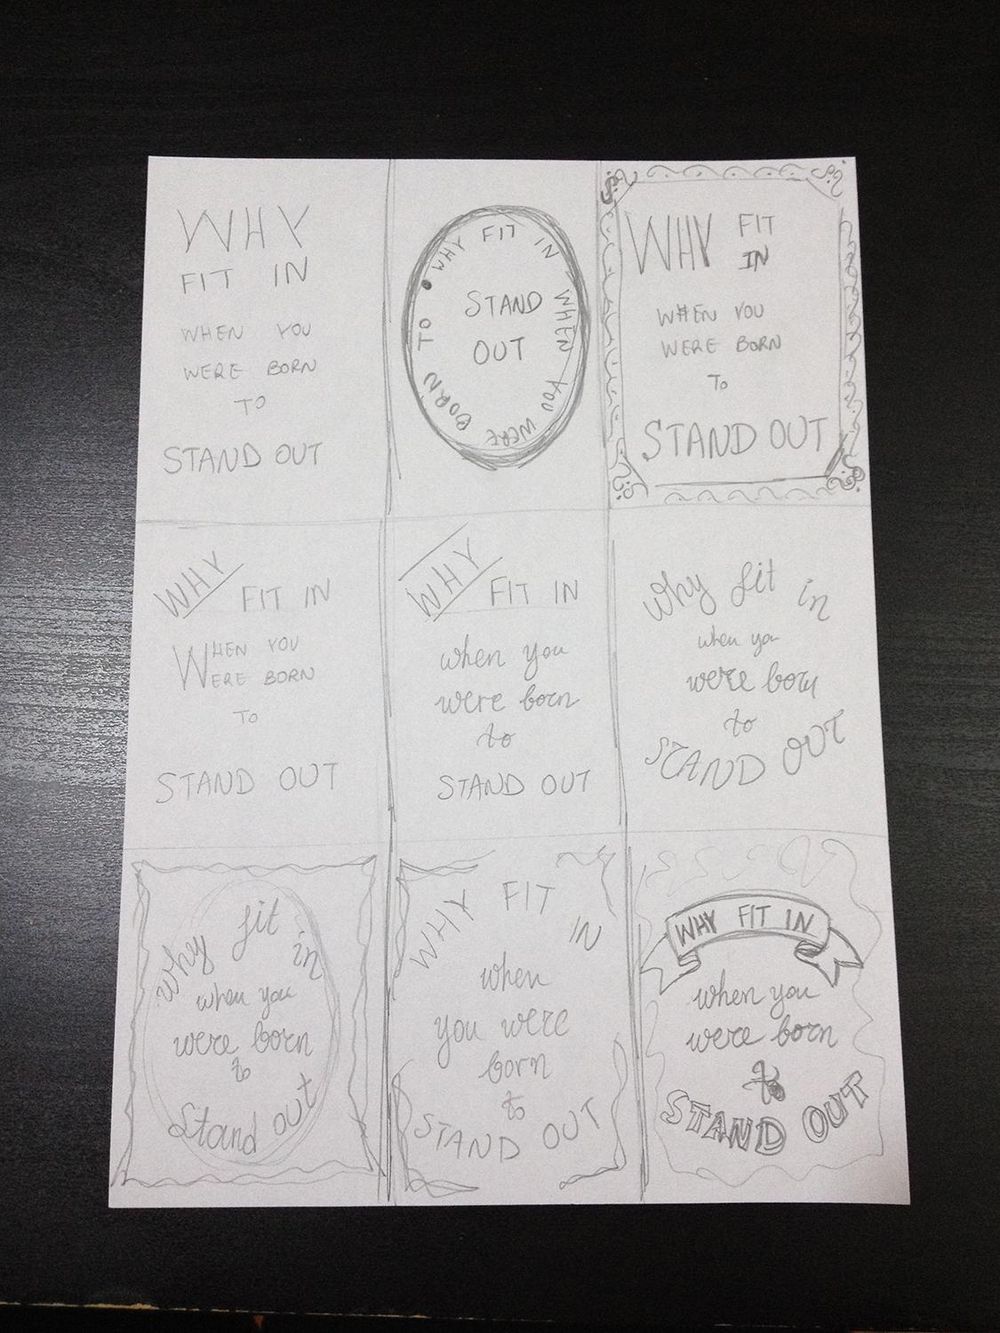 WHY
FIT IN
WHEN YOU
WERE BORN
TO
STAND OUT
WHY FIT IN WHEN YOU WERE BORN TO
STAND
OUT
WHY FIT
IN
WHEN YOU
WERE BORN
TO
STAND OUT
WHY FIT IN
WHEN YOU
WERE BORN
TO
STAND OUT
WHY FIT IN
when you
were born
to
STAND OUT
why fit in
when you
were born
to
STAND OUT
why fit in
when you
were born
to
Stand out
WHY FIT IN
when
you were
born
to
STAND OUT
WHY FIT IN
when you
were born
to
STAND OUT